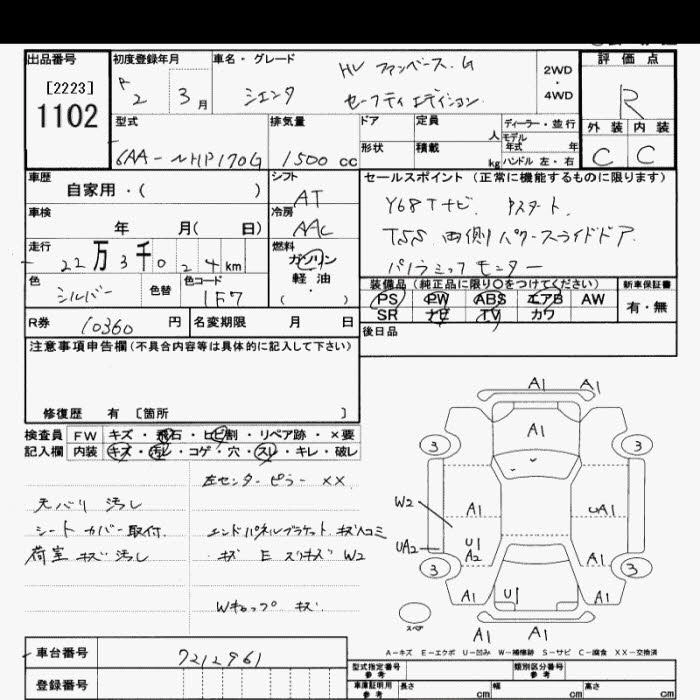 出品番号
[2223]
1102
初度登録年月
R 2 3 月
車名・グレード
HV ファンベース G
シエンタ セーフティ エディション
2WD
・
4WD
評 価 点
R
外 装 内 装
C C
型式
6AA-NHP170G
排気量
1500 cc
ドア
定員
人
形状
積載
kg
ディーラー・並行
モデル
年式 年
ハンドル 左・右
車歴
自家用・( )
シフト
AT
セールスポイント (正常に機能するものに限ります)
Y68Tナビ. Pスタート.
TSS 両側パワースライドドア.
パノラミックモニター
車検
年 月( 日)
冷房
AAC
走行
22万3千024km
燃料
ガソリン
軽 油
( ・ )
色
シルバー
色替
色コード
1F7
装備品 (純正品に限り○をつけてください)
PS PW ABS エアB AW
SR ナビ TV カワ
新車保証書
有・無
R券
10360 円
名変期限 月 日
後日品
注意事項申告欄(不具合内容等は具体的に記入して下さい)
修復歴 有 〔箇所 〕
検査員 FW キズ・飛石・ヒビ割・リペア跡・×要
記入欄 内装 キズ・汚レ・コゲ・穴・スレ・キレ・破レ
左センターピラー ××
天バリ 汚レ
シートカバー取付.
荷室 キズ 汚レ
エンドパネルブラケット. キズ凹コミ
・キズ E スリキズ W2
Wキャップ キズ
A1 A1
A1
3 3
W2
A1 UA1
UA2
U1
A2
A1
3 3
A1 U1 A1
スペア
A1 A1
A－キズ E－エクボ U－凹み W－補修跡 S－サビ C－腐食 XX－交換済
車台番号
7212961
登録番号
型式指定番号
参 考
類別区分番号
参 考
車庫証明用
参 考
長さ cm
幅 cm
高さ cm